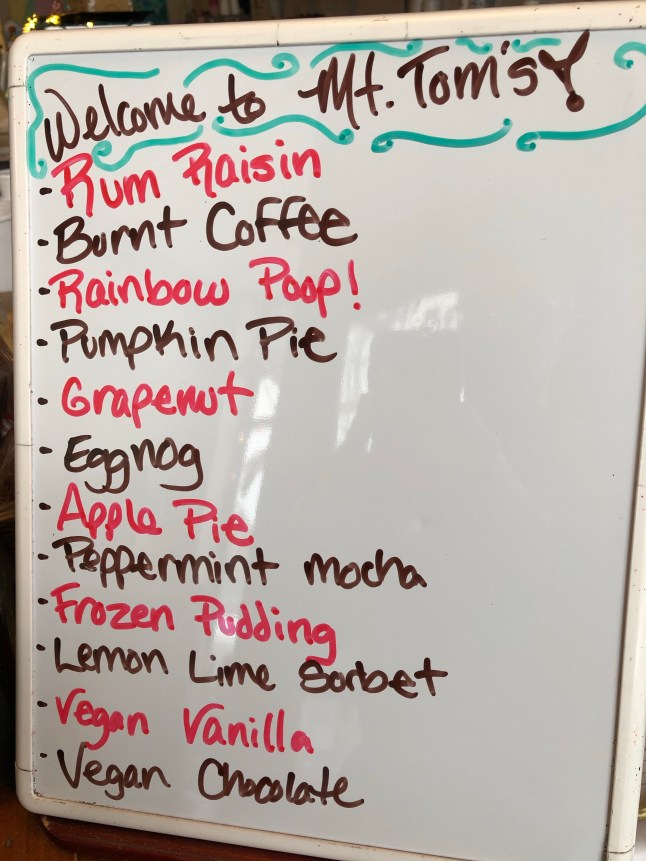 Welcome to Mt. Tom's!
• Rum Raisin
• Burnt Coffee
• Rainbow Poop!
• Pumpkin Pie
• Grapenut
• Eggnog
• Apple Pie
• Peppermint mocha
• Frozen Pudding
• Lemon Lime Sorbet
• Vegan Vanilla
• Vegan Chocolate